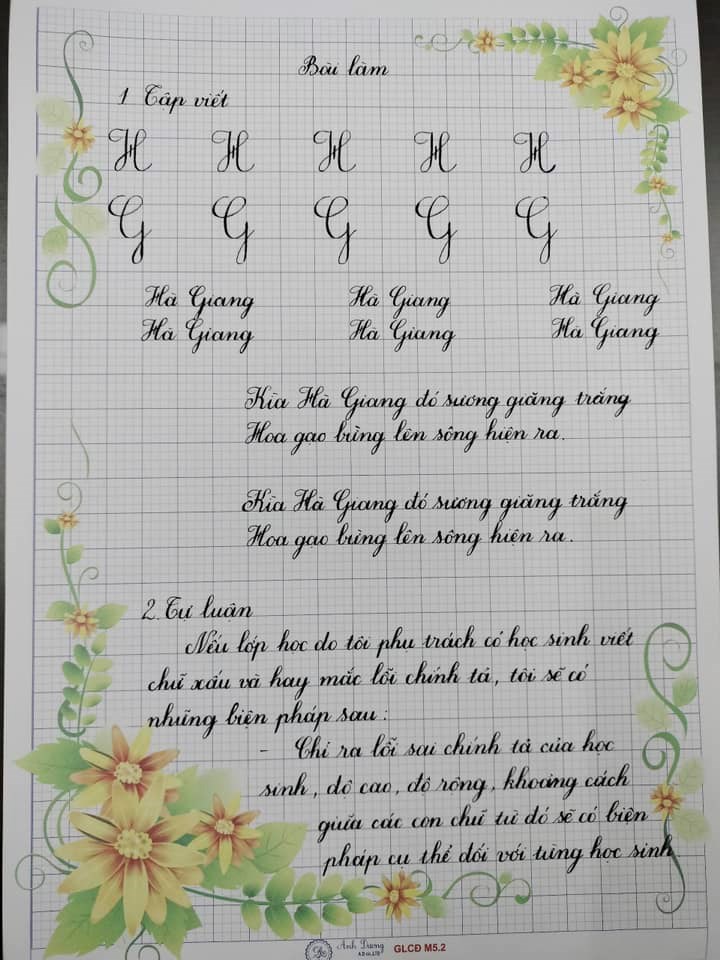 Bài làm
1 Tập viết
H H H H H
G G G G G
Hà Giang Hà Giang Hà Giang
Hà Giang Hà Giang Hà Giang
Kìa Hà Giang đó sương giăng trắng
Hoa gạo bừng lên sông hiện ra.
Kìa Hà Giang đó sương giăng trắng
Hoa gạo bừng lên sông hiện ra.
2. Tự luận
Nếu lớp học do tôi phụ trách có học sinh viết
chữ xấu và hay mắc lỗi chính tả, tôi sẽ có
những biện pháp sau:
- Chỉ ra lỗi sai chính tả của học
sinh, độ cao, độ rộng, khoảng cách
giữa các con chữ từ đó sẽ có biện
pháp cụ thể đối với từng học sinh
Anh Dung
GLCĐ M5.2